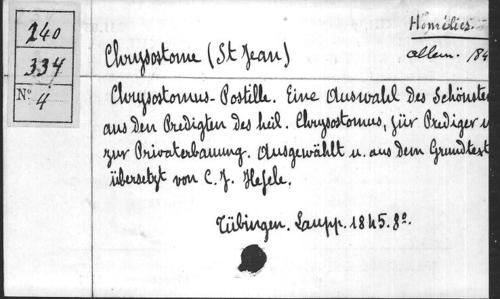 240
334
Nº 4
Homélies.
allem. 184
Chrysostome (St Jean)
Chrysostomus-Postille. Eine Auswahl des Schönsten
aus den Predigten des heil. Chrysostomus, für Prediger u
zur Privaterbauung. Ausgewählt u. aus dem Grundtext
übersetzt von C. J. Hefele.
Tübingen. Laupp. 1845. 8º.